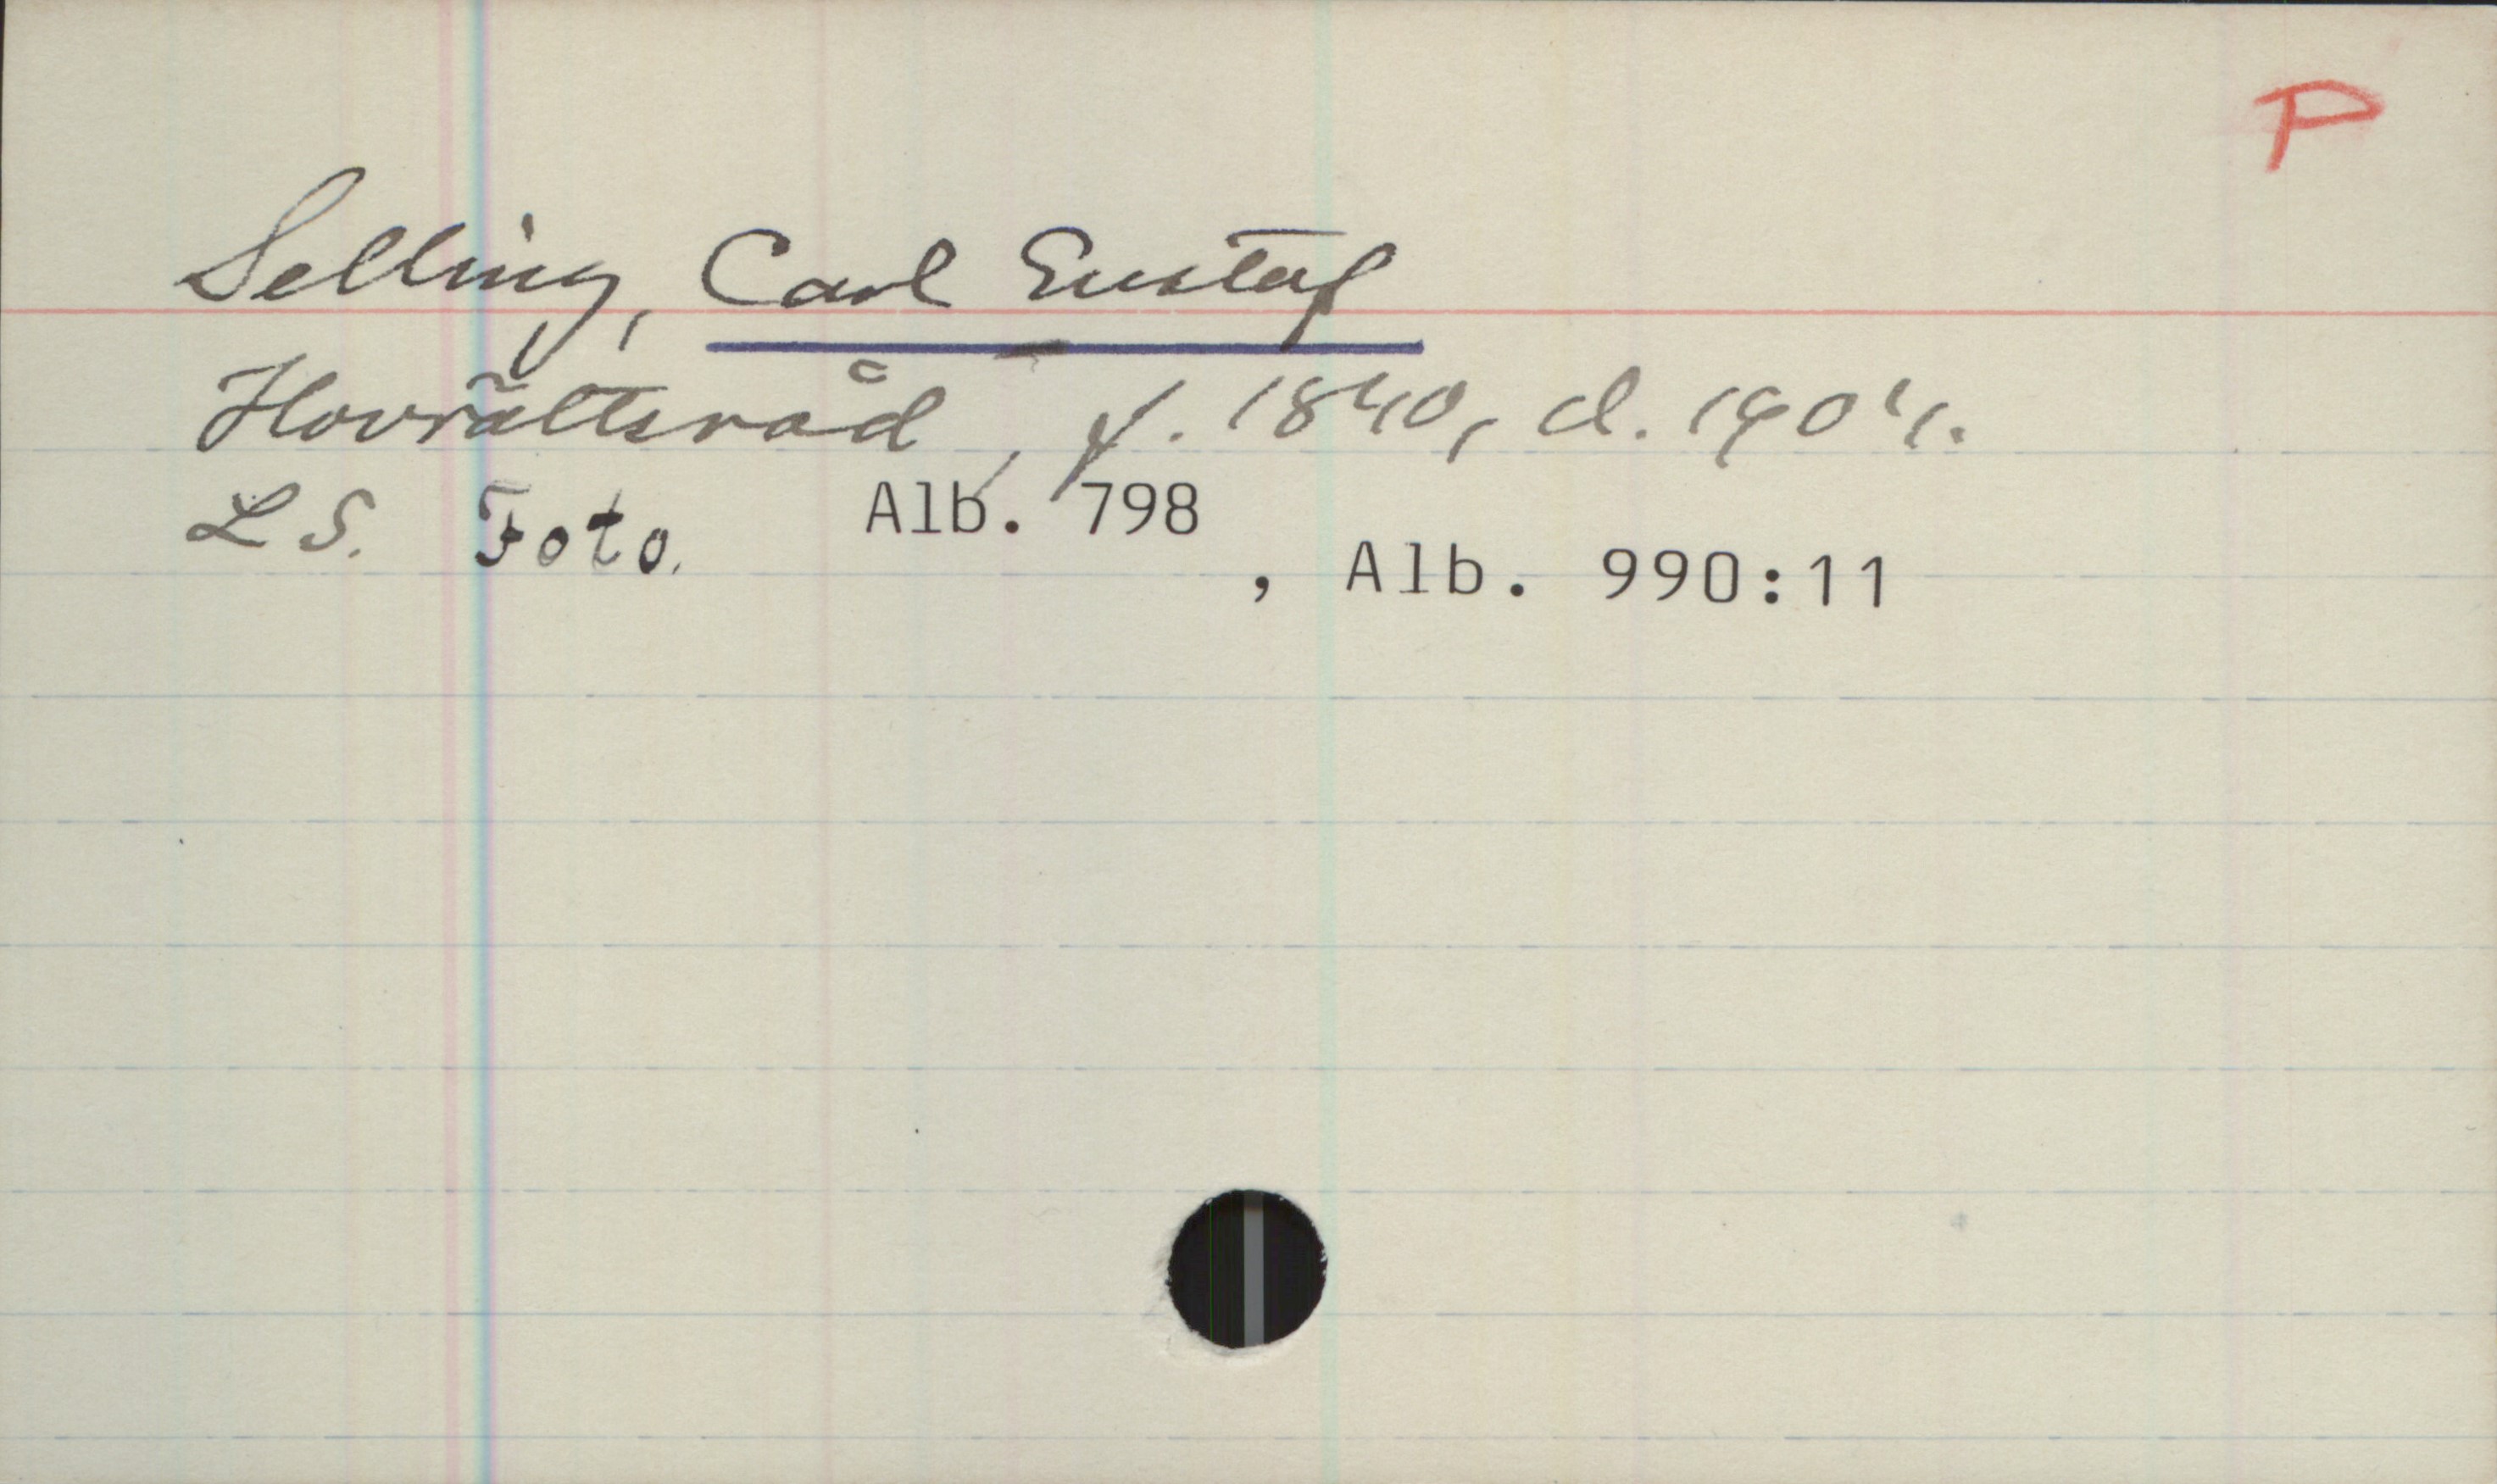 P
Selling, Carl Gustaf
Hovrättsråd, f. 1840, d. 1904.
L S. Foto. Alb. 798
, Alb. 990:11